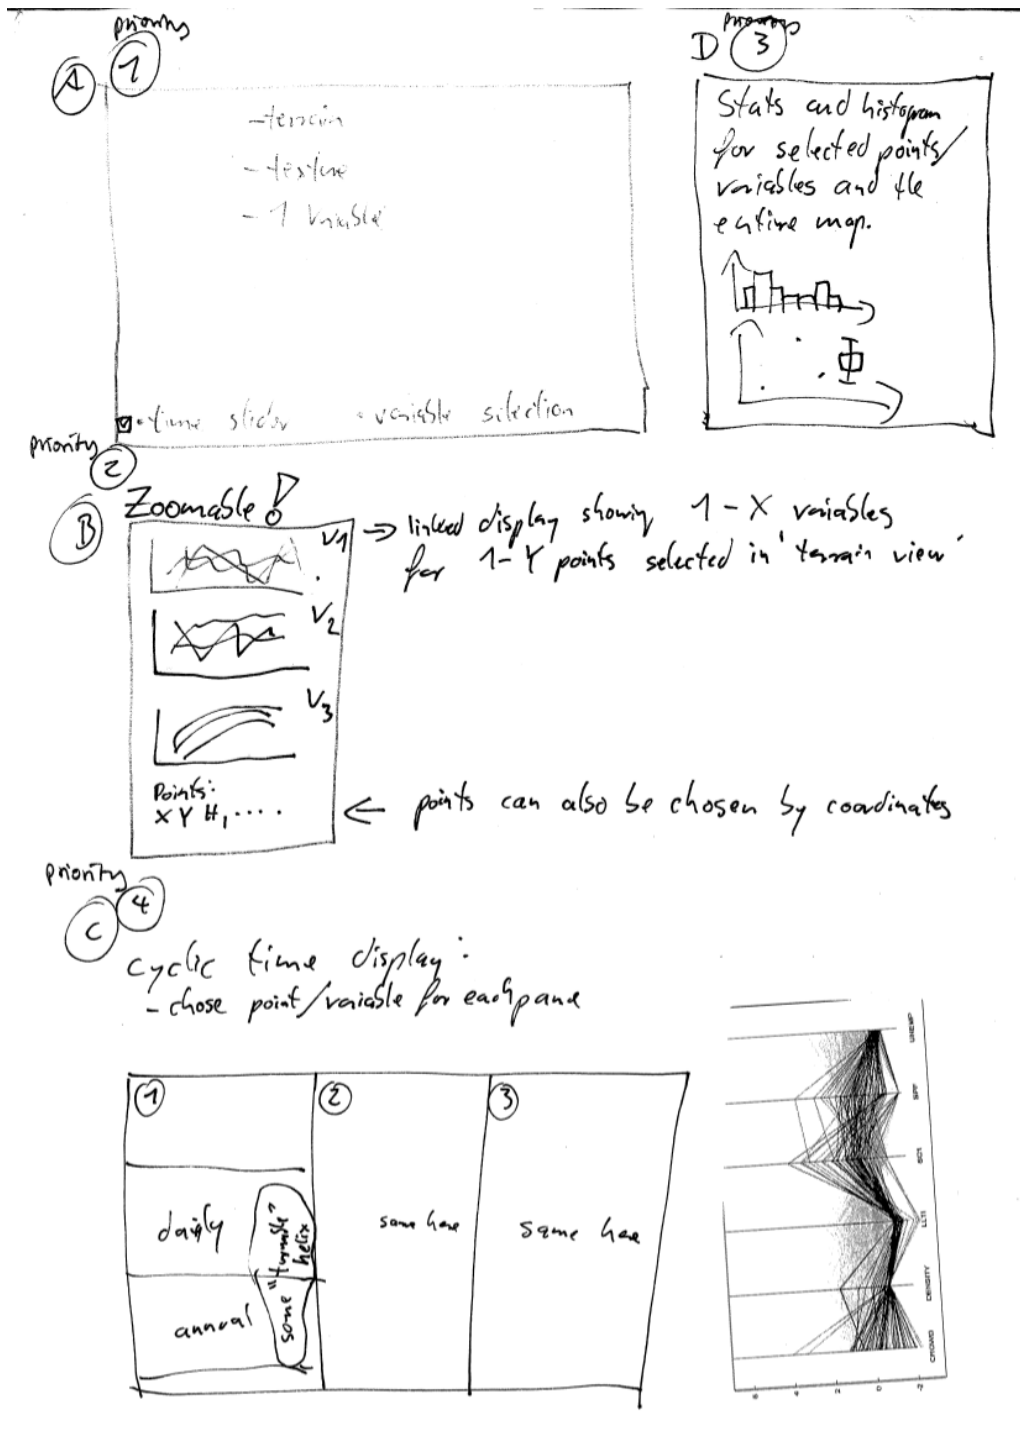 priority
1
A
- terrain
- texture
- 1 variable
• time slider • variable selection
priority
D 3
Stats and histogram
for selected points/
variables and the
entire map.
priority
2
B
Zoomable!
V1
V2
V3
Points:
X Y H, ....
→ linked display showing 1 - X variables
for 1 - Y points selected in 'terrain view'
← points can also be chosen by coordinates
priority
4
C
cyclic time display:
- chose point/variable for each pane
1
daily
annual
some "tunable"
helix
2
same here
3
same here
UNEMP
SPF
SC1
LLTI
DENSITY
CROWD
6
4
2
0
-2